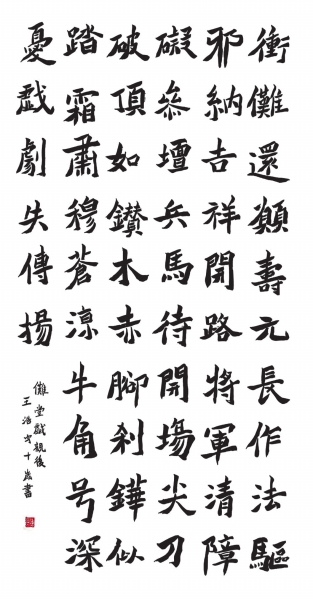 衝儺還願壽元長作法驅
邪納吉祥開路將軍清障
礙叅壇兵馬待開場尖刀
破頂如鑽木赤腳刹鏵似
踏霜肅穆蒼涼牛角号深
憂戲劇失傳揚
儺堂戲觀後
王 十歲書